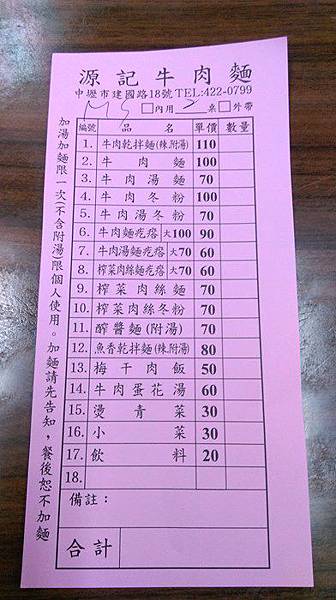 源記牛肉麵
中壢市建國路18號TEL:422-0799
□內用 2 桌□外帶
編號 品名 單價 數量
1. 牛肉乾拌麵(辣.附湯) 110
2. 牛肉麵 100
3. 牛肉湯麵 70
4. 牛肉冬粉 100
5. 牛肉湯冬粉 70
6. 牛肉麵疙瘩 大100 90
7. 牛肉湯麵疙瘩 大70 60
8. 榨菜肉絲麵疙瘩 大70 60
9. 榨菜肉絲麵 70
10. 榨菜肉絲冬粉 70
11. 酢醬麵(附湯) 70
12. 魚香乾拌麵(辣.附湯) 80
13. 梅干肉飯 50
14. 牛肉蛋花湯 60
15. 燙青菜 30
16. 小菜 30
17. 飲料 20
18.
備註：
合計
加湯加麵限一次(不含附湯)限個人使用。加麵請先告知，餐後恕不加麵